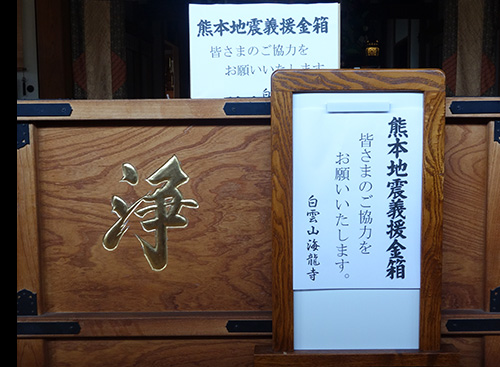 熊本地震義援金箱
皆さまのご協力を
お願いいたします
浄
熊本地震義援金箱
皆さまのご協力を
お願いいたします。
白雲山海龍寺